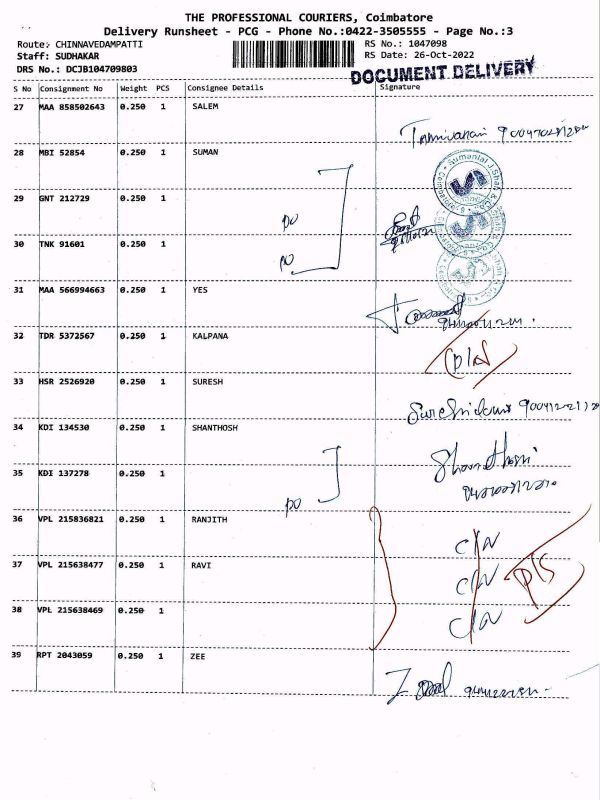 THE PROFESSIONAL COURIERS, Coimbatore
Delivery Runsheet - PCG - Phone No.:0422-3505555 - Page No.:3
Route: CHINNAVEDAMPATTI RS No.: 1047098
Staff: SUDHAKAR RS Date: 26-Oct-2022
DRS No.: DCJB104709803
DOCUMENT DELIVERY
S No Consignment No Weight PCS Consignee Details Signature
27 MAA 858502643 0.250 1 SALEM
28 MBI 52854 0.250 1 SUMAN
29 GNT 212729 0.250 1
DO
30 TNK 91601 0.250 1
DO
31 MAA 566994663 0.250 1 YES
32 TDR 5372567 0.250 1 KALPANA
D/N
33 HSR 2526920 0.250 1 SURESH
34 KDI 134530 0.250 1 SHANTHOSH
35 KDI 137278 0.250 1
DO
36 VPL 215836821 0.250 1 RANJITH
C/N
37 VPL 215638477 0.250 1 RAVI
C/N D/S
38 VPL 215638469 0.250 1
C/N
39 RPT 2043059 0.250 1 ZEE